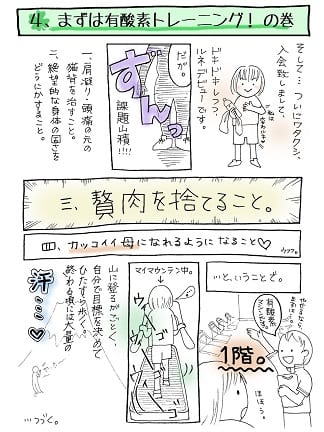 4、まずは有酸素トレーニング！の巻
そして…ついにワタクシ、
入会致しまして、
ドキドキしつつ、
ルネデビューです。
だが。
ずんっ
課題山積!!!!
一、肩凝り・頭痛の元の
猫背を治すこと。
二、絶望的な身体の固さを
どうにかすること。
三、贅肉を捨てること。
四、カッコイイ母になれるようになること♡
ウフフ。
…と、いうことで。
有酸素
マシンです。
1階。
ほほう。
マイマウンテン中。
ウィーン
ゴゴ
山に登るがごとく、
自分で目標を決めて
ひたすら歩く。
終わる頃には大量の
汗…♡
…つづく。